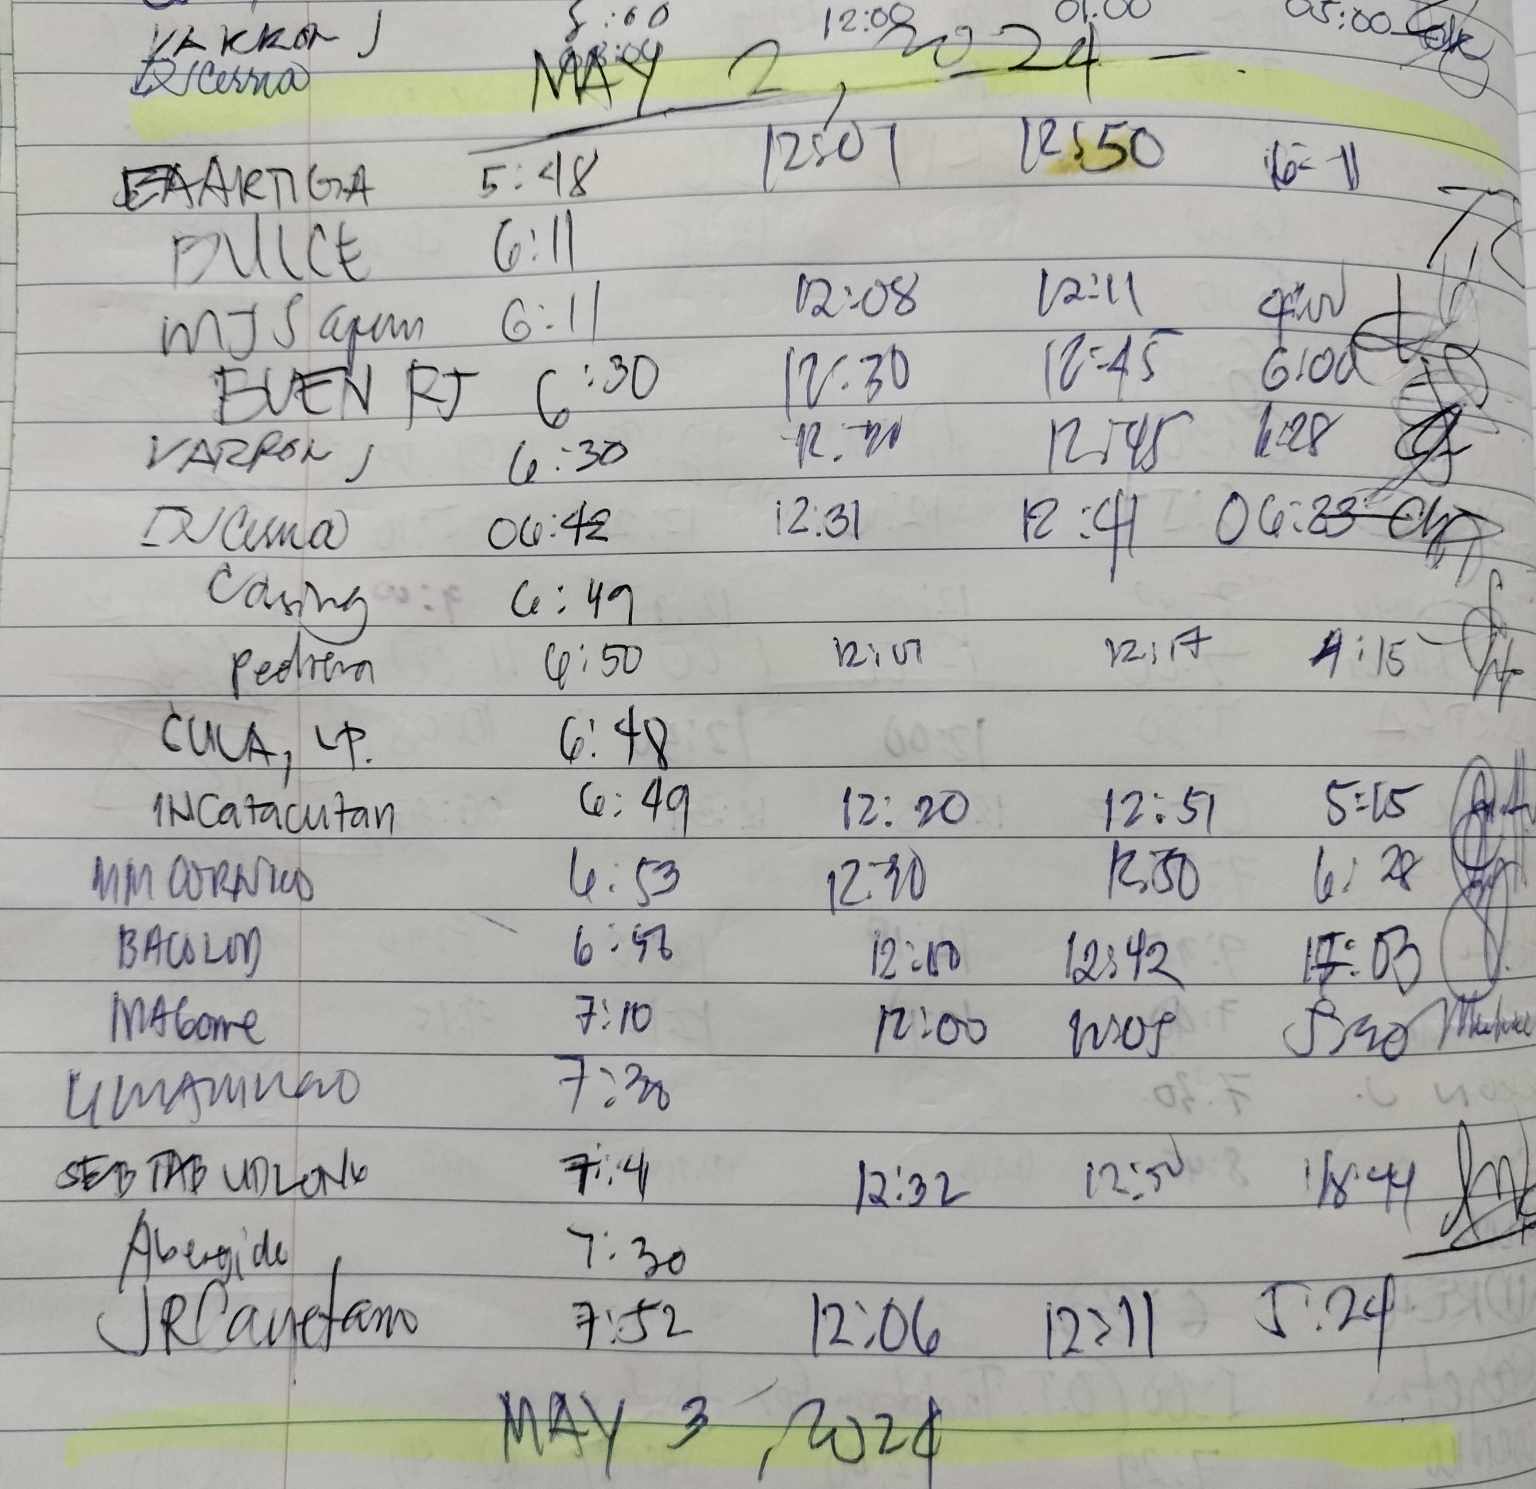 VARRON J 5:00 12:00 01:00 05:00
DJCerna 08:04
MAY 2, 2024
EAARTIGA 5:48 12:01 12:50 16:11
DULCE 6:11
MJSapun 6:11 12:08 12:11
BUEN RJ 6:30 12:30 12:45 6:00
VARRON J 6:30 12:45 6:28
DJCerna 06:42 12:31 12:41 06:23
Casing 6:49
Pedrera 6:50 12:01 12:17 4:15
CULA, LP. 6:48
INCatacutan 6:49 12:20 12:51 5:15
6:53 12:30 12:50 6:28
BACOLOD 6:56 12:00 12:42 17:03
MAGome 7:10 12:00 12:05 5:20
7:30
SEB TAB UDLONG 7:41 12:32 12:50 18:44
Abengide 7:30
JRCayetano 7:52 12:06 12:11 5:24
MAY 3, 2024